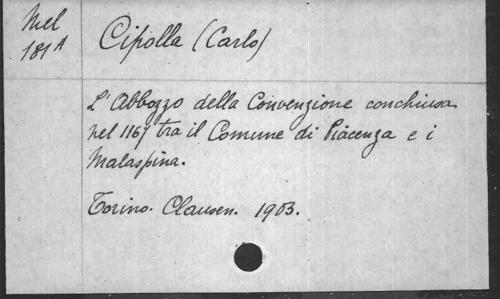 Mel
181 A
Cipolla (Carlo)
L'Abbozzo della Convenzione conchiusa
nel 1167 tra il Comune di Piacenza e i
Malaspina.
Torino. Clausen. 1903.